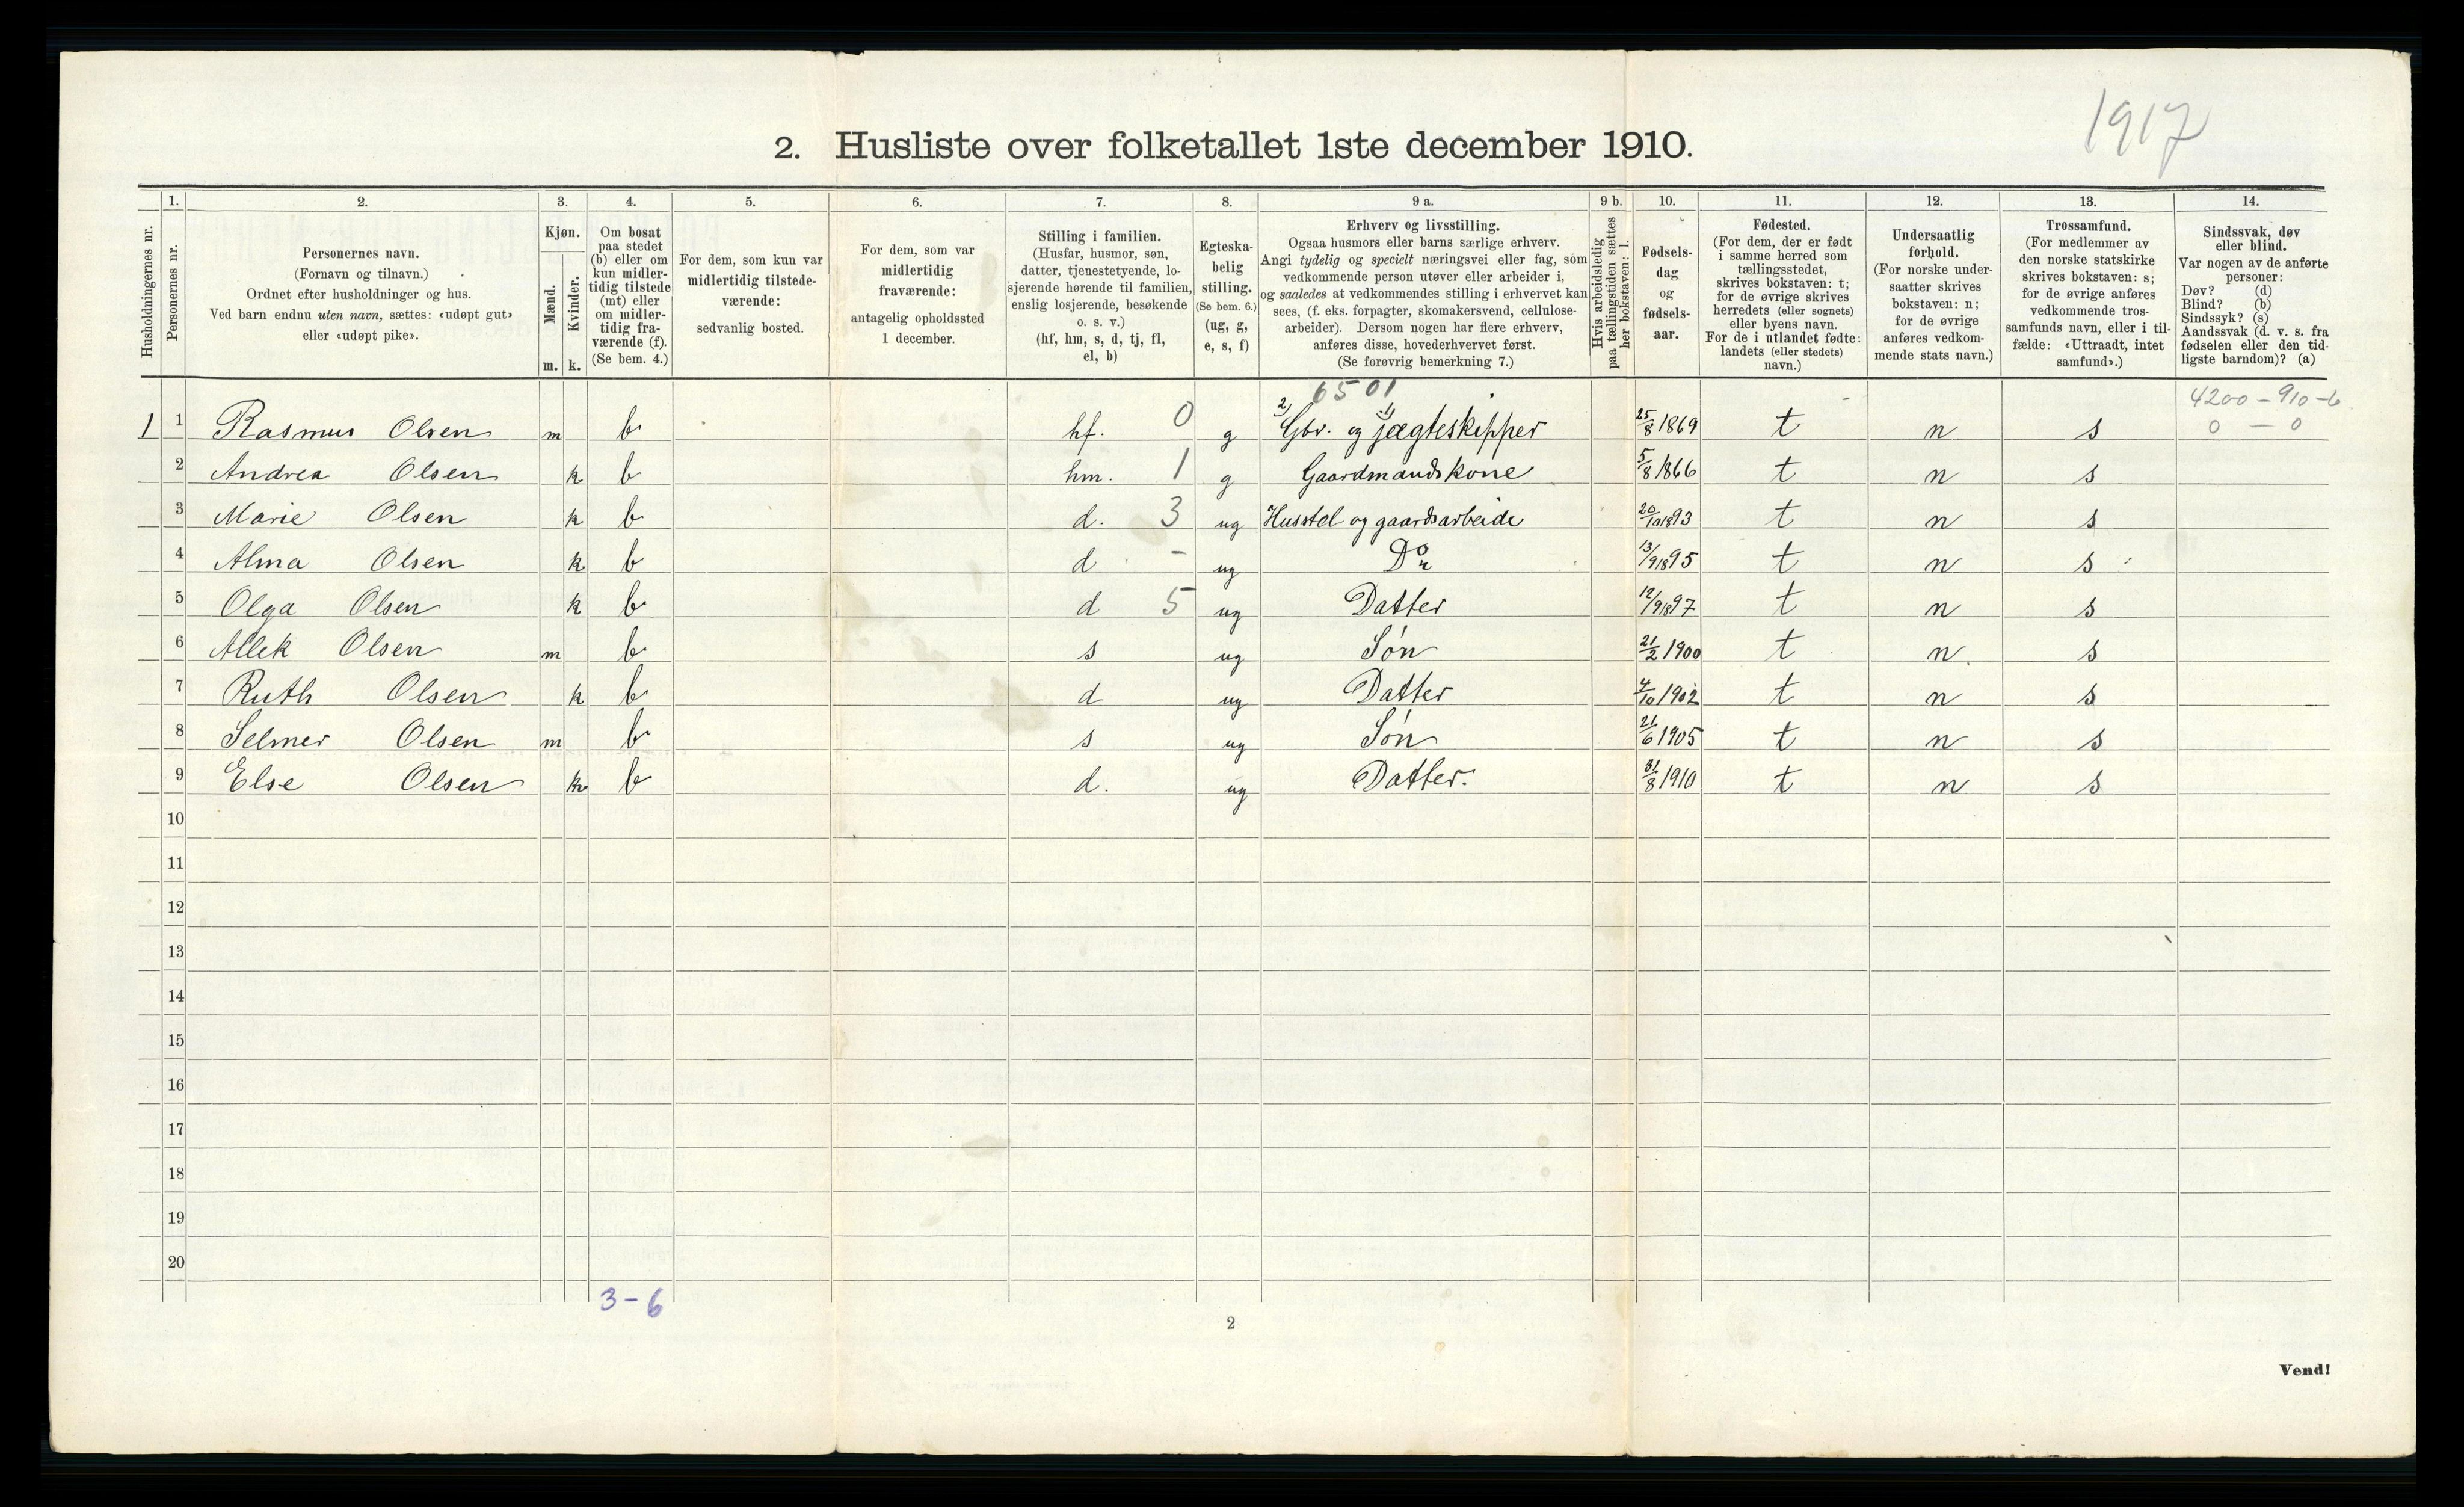 1917
2. Husliste over folketallet 1ste december 1910.
Husholdningernes nr.
1.
Personernes nr.
2.
Personernes navn.
(Fornavn og tilnavn.)
Ordnet efter husholdninger og hus.
Ved barn endnu uten navn, sættes: «udøpt gut»
eller «udøpt pike».
3.
Kjøn.
Mænd.
Kvinder.
m. k.
4.
Om bosat
paa stedet
(b) eller om
kun midler-
tidig tilstede
(mt) eller
om midler-
tidig fra-
værende (f).
(Se bem. 4.)
5.
For dem, som kun var
midlertidig tilstede-
værende:
sedvanlig bosted.
6.
For dem, som var
midlertidig
fraværende:
antagelig opholdssted
1 december.
7.
Stilling i familien.
(Husfar, husmor, søn,
datter, tjenestetyende, lo-
sjerende hørende til familien,
enslig losjerende, besøkende
o. s. v.)
(hf, hm, s, d, tj, fl,
el, b)
8.
Egteska-
belig
stilling.
(Se bem. 6.)
(ug, g,
e, s, f)
9 a.
Erhverv og livsstilling.
Ogsaa husmors eller barns særlige erhverv.
Angi tydelig og specielt næringsvei eller fag, som
vedkommende person utøver eller arbeider i,
og saaledes at vedkommendes stilling i erhvervet kan
sees, (f. eks. forpagter, skomakersvend, cellulose-
arbeider). Dersom nogen har flere erhverv,
anføres disse, hovederhvervet først.
(Se forøvrig bemerkning 7.)
9 b.
Hvis arbeidsledig
paa tællingstiden sættes
her bokstaven: l.
10.
Fødsels-
dag
og
fødsels-
aar.
11.
Fødested.
(For dem, der er født
i samme herred som
tællingsstedet,
skrives bokstaven: t;
for de øvrige skrives
herredets (eller sognets)
eller byens navn.
For de i utlandet fødte:
landets (eller stedets)
navn.)
12.
Undersaatlig
forhold.
(For norske under-
saatter skrives
bokstaven: n;
for de øvrige
anføres vedkom-
mende stats navn.)
13.
Trossamfund.
(For medlemmer av
den norske statskirke
skrives bokstaven: s;
for de øvrige anføres
vedkommende tros-
samfunds navn, eller i til-
fælde: «Uttraadt, intet
samfund».)
14.
Sindssvak, døv
eller blind.
Var nogen av de anførte
personer:
Døv? (d)
Blind? (b)
Sindssyk? (s)
Aandssvak (d. v. s. fra
fødselen eller den tid-
ligste barndom)? (a)
6501
4200-910-6
2) 1)
1 1 Rasmus Olsen m b hf. 0 g Gbr. og jægteskipper 25/8 1869 t n s 0 - 0
2 Andrea Olsen k b hm. 1 g Gaardmandskone 5/8 1866 t n s
3 Marie Olsen k b d. 3 ug Husstel og gaardsarbeide 20/10 1893 t n s
4 Alma Olsen k b d - ug Do 13/9 1895 t n s
5 Olga Olsen k b d 5 ug Datter 12/9 1897 t n s
6 Allek Olsen m b s ug Søn 21/2 1900 t n s
7 Ruth Olsen k b d ug Datter 4/10 1902 t n s
8 Selmer Olsen m b s ug Søn 21/6 1905 t n s
9 Else Olsen k b d. ug Datter. 31/8 1910 t n s
10
11
12
13
14
15
16
17
18
19
20
3-6
2
Vend!